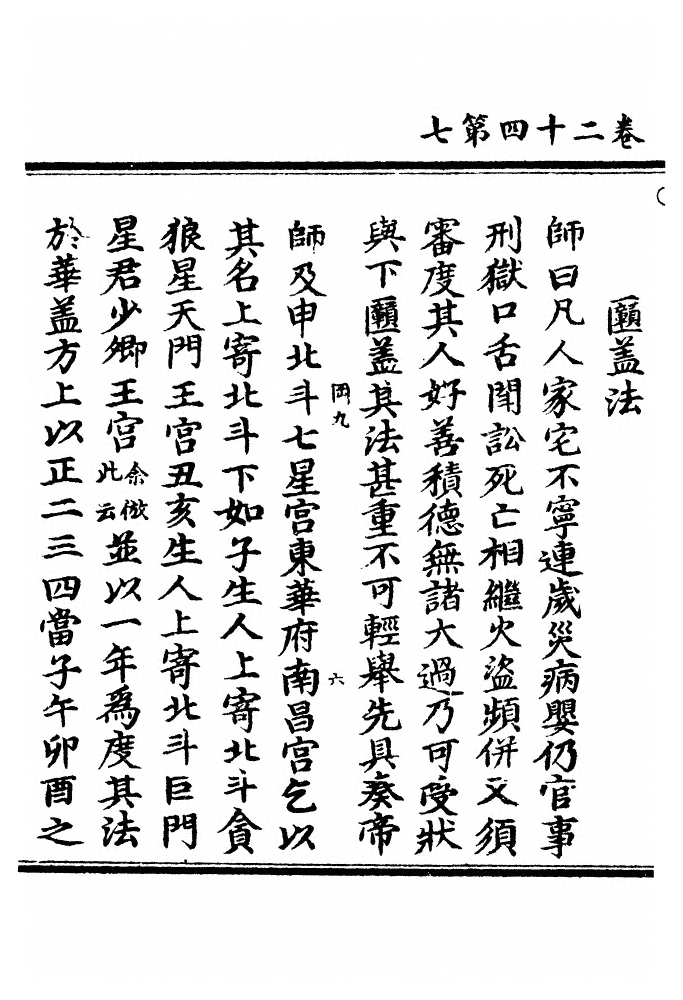 卷二十四第七
𠫷蓋法
師曰凡人家宅不寧連歲災病嬰仍官事
刑獄口舌鬪訟死亡相繼火盜頻併又須
審度其人好善積德無諸大過乃可受狀
與下蓋其法甚重不可輕舉先具奏帝
岡九 六
師及申北斗七星宮東華府南昌宮乞以
其名上寄北斗下如子生人上寄北斗貪
狼星天門王宮丑亥生人上寄北斗巨門
星君少卿王宮余倣此云並以一年爲度其法
於華蓋方上以正二三四當子午卯酉之